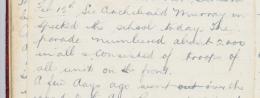 Feb 12th Sir Archibald Murray in
spected the school today. The
parade numbered about 2000
in all & consisted of troops of
all units on the front.
A few days ago went out over the